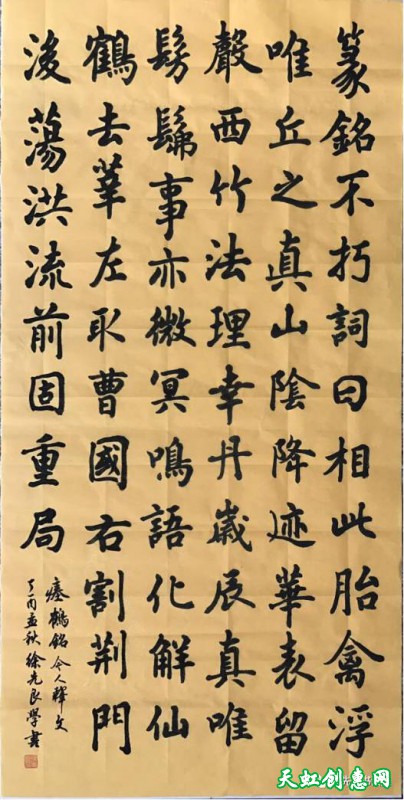 篆銘不朽詞曰相此胎禽浮
唯丘之真山陰降迹華表留
聲西竹法理幸丹歲辰真唯
髣髴事亦微冥鳴語化解仙
鶴去莘左取曹國右割荆門
後蕩洪流前固重局
瘞鶴銘今人釋文
孟秋徐良學書
天虹创惠网